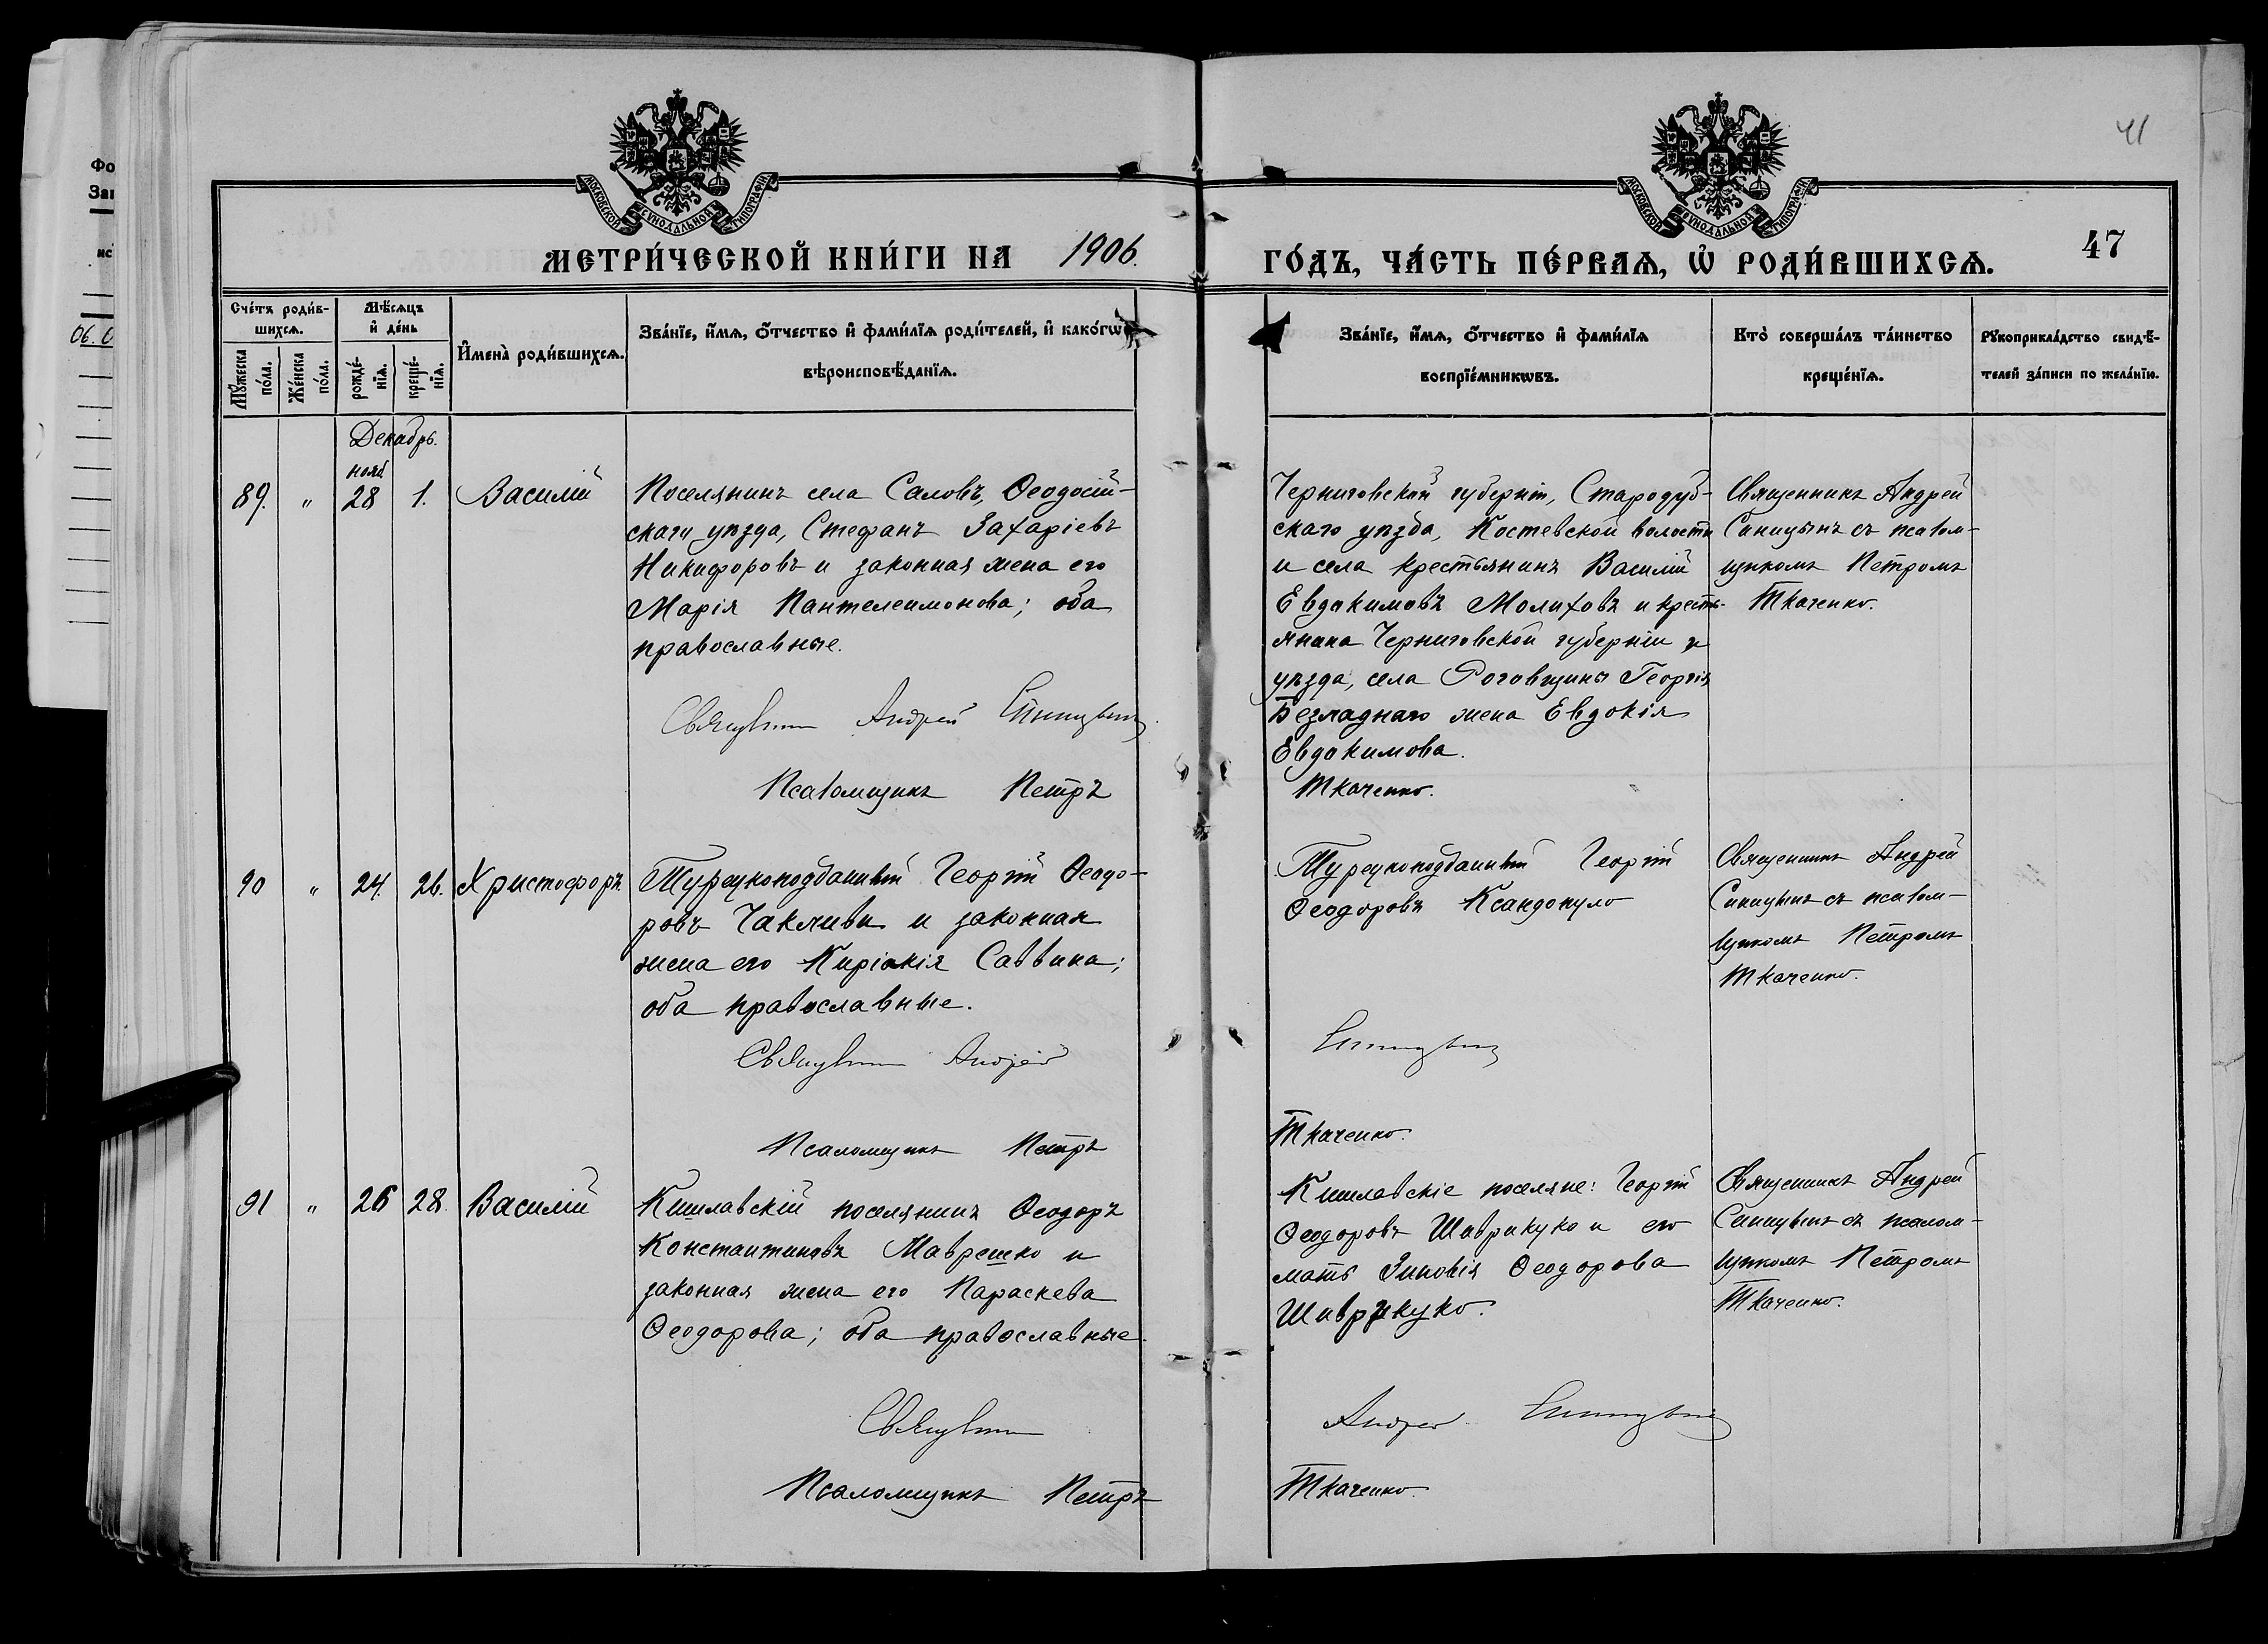 МОСКОВСКОЙ СѴНОДАЛЬНОЙ ТИПОГРАФІИ
МОСКОВСКОЙ СѴНОДАЛЬНОЙ ТИПОГРАФІИ
41
МЕТРИ́ЧЕСКОЙ КНИ́ГИ НА 1906.
ГО́ДЪ, ЧА́СТЬ ПЕ́РВАѦ, Ѡ҆ РОДИ́ВШИХСѦ.
47
Сче́тъ роди́в-
шихсѧ.
Мѣ́сѧцъ
и҆ де́нь
Мꙋ́жеска по́ла.
Же́нска по́ла.
рожде́-нїѧ.
креще́-нїѧ.
И҆мена̀ роди́вшихсѧ.
Зва́нїе, и҆́мѧ, ѻ҆́тчество и҆ фами́лїѧ роди́телей, и҆ како́гѡ
вѣроисповѣ́данїѧ.
Зва́нїе, и҆́мѧ, ѻ҆́тчество и҆ фами́лїѧ
воспрїе́мникѡвъ.
Кто̀ соверша́лъ та́инство
креще́нїѧ.
Рꙋкоприкла́дство свидѣ́-
телей за́писи по жела́нїю.
Фо
За
06.0
Декабрь.
нояб
89. " 28 1. Василій
Поселянинъ села Саловъ, Ѳеодосій-
скаго уѣзда, Стефанъ Захаріевъ
Никифоровъ и законная жена его
Марія Пантелеимонова; оба
православные.
Священникъ Андрей Синицынъ
Псаломщикъ Петръ
Черниговской губерніи, Стародуб-
скаго уѣзда, Костевской волости
и села крестьянинъ Василій
Евдокимовъ Молиховъ и кресть-
янина Черниговской губерніи и
уѣзда, села Роговщины Георгія
Безладнаго жена Евдокія
Евдокимова.
Ткаченко.
Священникъ Андрей
Синицынъ съ псалом-
щикомъ Петромъ
Ткаченко.
90 " 24. 26. Христофоръ
Турецкоподданный Георгій Ѳеодо-
ровъ Чакчиви и законная
жена его Киріакія Саввина;
оба православные.
Священникъ Андрей
Псаломщикъ Петръ
Турецкоподданный Георгій
Ѳеодоровъ Ксандопуло
Синицынъ
Ткаченко.
Священникъ Андрей
Синицынъ съ псалом-
щикомъ Петромъ
Ткаченко.
91 " 26 28. Василій
Кишлавскій поселянинъ Ѳеодоръ
Константиновъ Маврешко и
законная жена его Параскева
Ѳеодорова; оба православные.
Священникъ
Псаломщикъ Петръ
Кишлавскіе поселяне: Георгій
Ѳеодоровъ Шаврикуко и его
мать Зиновія Ѳеодорова
Шаврикуко.
Андрей Синицынъ
Ткаченко.
Священникъ Андрей
Синицынъ съ псалом-
щикомъ Петромъ
Ткаченко.